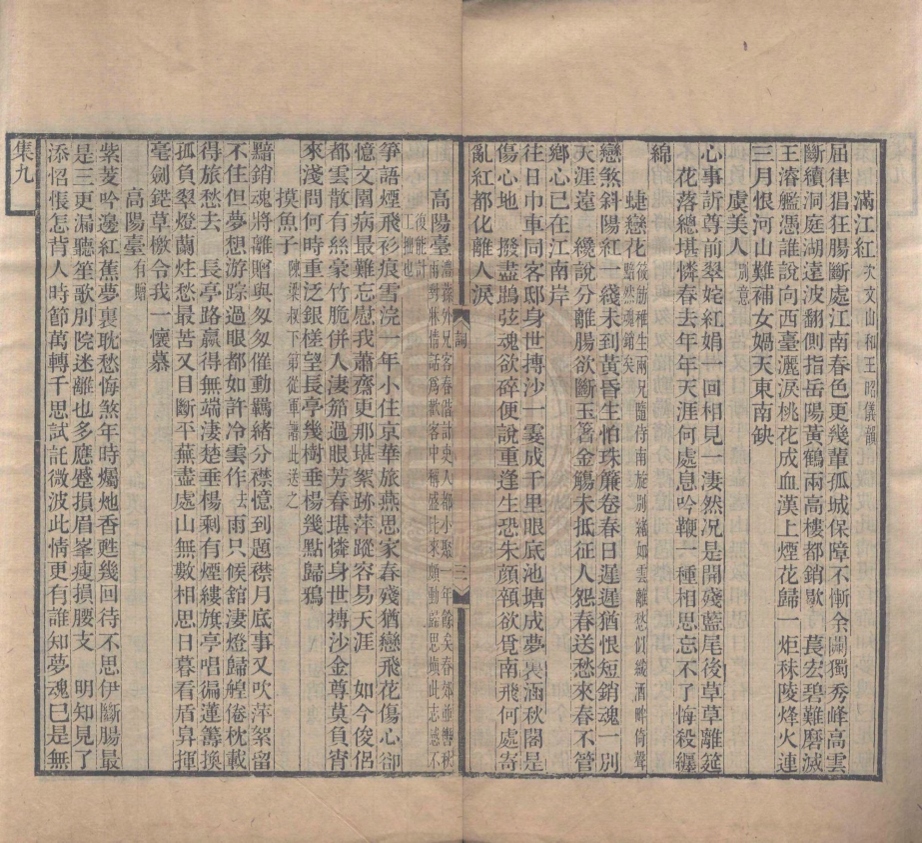 滿江紅次文山和王昭儀韻
屈律猖狂腸斷處江南春色更幾輩孤城保障不慚余闕獨秀峰高雲
斷續洞庭湖遠波翻側指岳陽黃鶴兩高樓都銷歇　萇宏碧難磨滅
王濬艦憑誰說向西臺灑淚桃花成血漢上煙花歸一炬秣陵烽火連
三月恨河山難補女媧天東南缺
虞美人別意
心事訴尊前翠姹紅娟一回相見一淒然况是開殘藍尾後草草離筵
　花落總堪憐春去年年天涯何處息吟鞭一種相思忘不了悔殺纏
綿
蜨戀花筱舫稚生兩兄隨侍南旋別緒如雲離愁似織酒畔倚聲黯然魂銷矣
戀煞斜陽紅一綫未到黃昏生怕珠簾卷春日遲遲猶恨短銷魂一別
天涯遠　纔說分離腸欲斷玉箸金觴未抵征人怨春送愁來春不管
鄉心已在江南岸
往日巾車同客邸身世摶沙一霎成千里眼底池塘成夢裏涵秋閣是
傷心地　撥盡鵾弦魂欲碎便說重逢生恐朱顏顇欲覓南飛何處寄
亂紅都化離人淚
詞
三
高陽臺
箏語煙飛衫痕雪浣一年小住京華旅燕思家春殘猶戀飛花傷心卻
憶文園病最難忘慰我蕭齋更那堪絮跡萍蹤容易天涯　如今俊侶
都雲散有絲豪竹脆併人淒笳過眼芳春堪憐身世摶沙金尊莫負宵
來淺問何時重泛銀槎望長亭幾樹垂楊幾點歸鴉
摸魚子陳梁叔下第從軍譜此送之
黯銷魂將離贈與匆匆催動羈緒分襟憶到題襟月底事又吹萍絮留
不住但夢想游踪過眼都如許冷雲作去雨只候舘淒燈歸艎倦枕載
得旅愁去　長亭路贏得無端淒楚垂楊剩有煙縷旗亭唱徧蓮籌換
孤負翠燈蘭炷愁最苦又目斷平蕪盡處山無數相思日暮看盾鼻揮
毫劍鐙草檄令我一懷慕
高陽臺有贈
紫菱吟邊紅蕉夢裏耽愁悔煞年時爥灺香甦幾回待不思伊斷腸最
是三更漏聽笙歌別院迷離也多應蹙損眉峯瘦損腰支　明知見了
添怊悵怎背人時節萬轉千思試託微波此情更有誰知夢魂已是無
集九